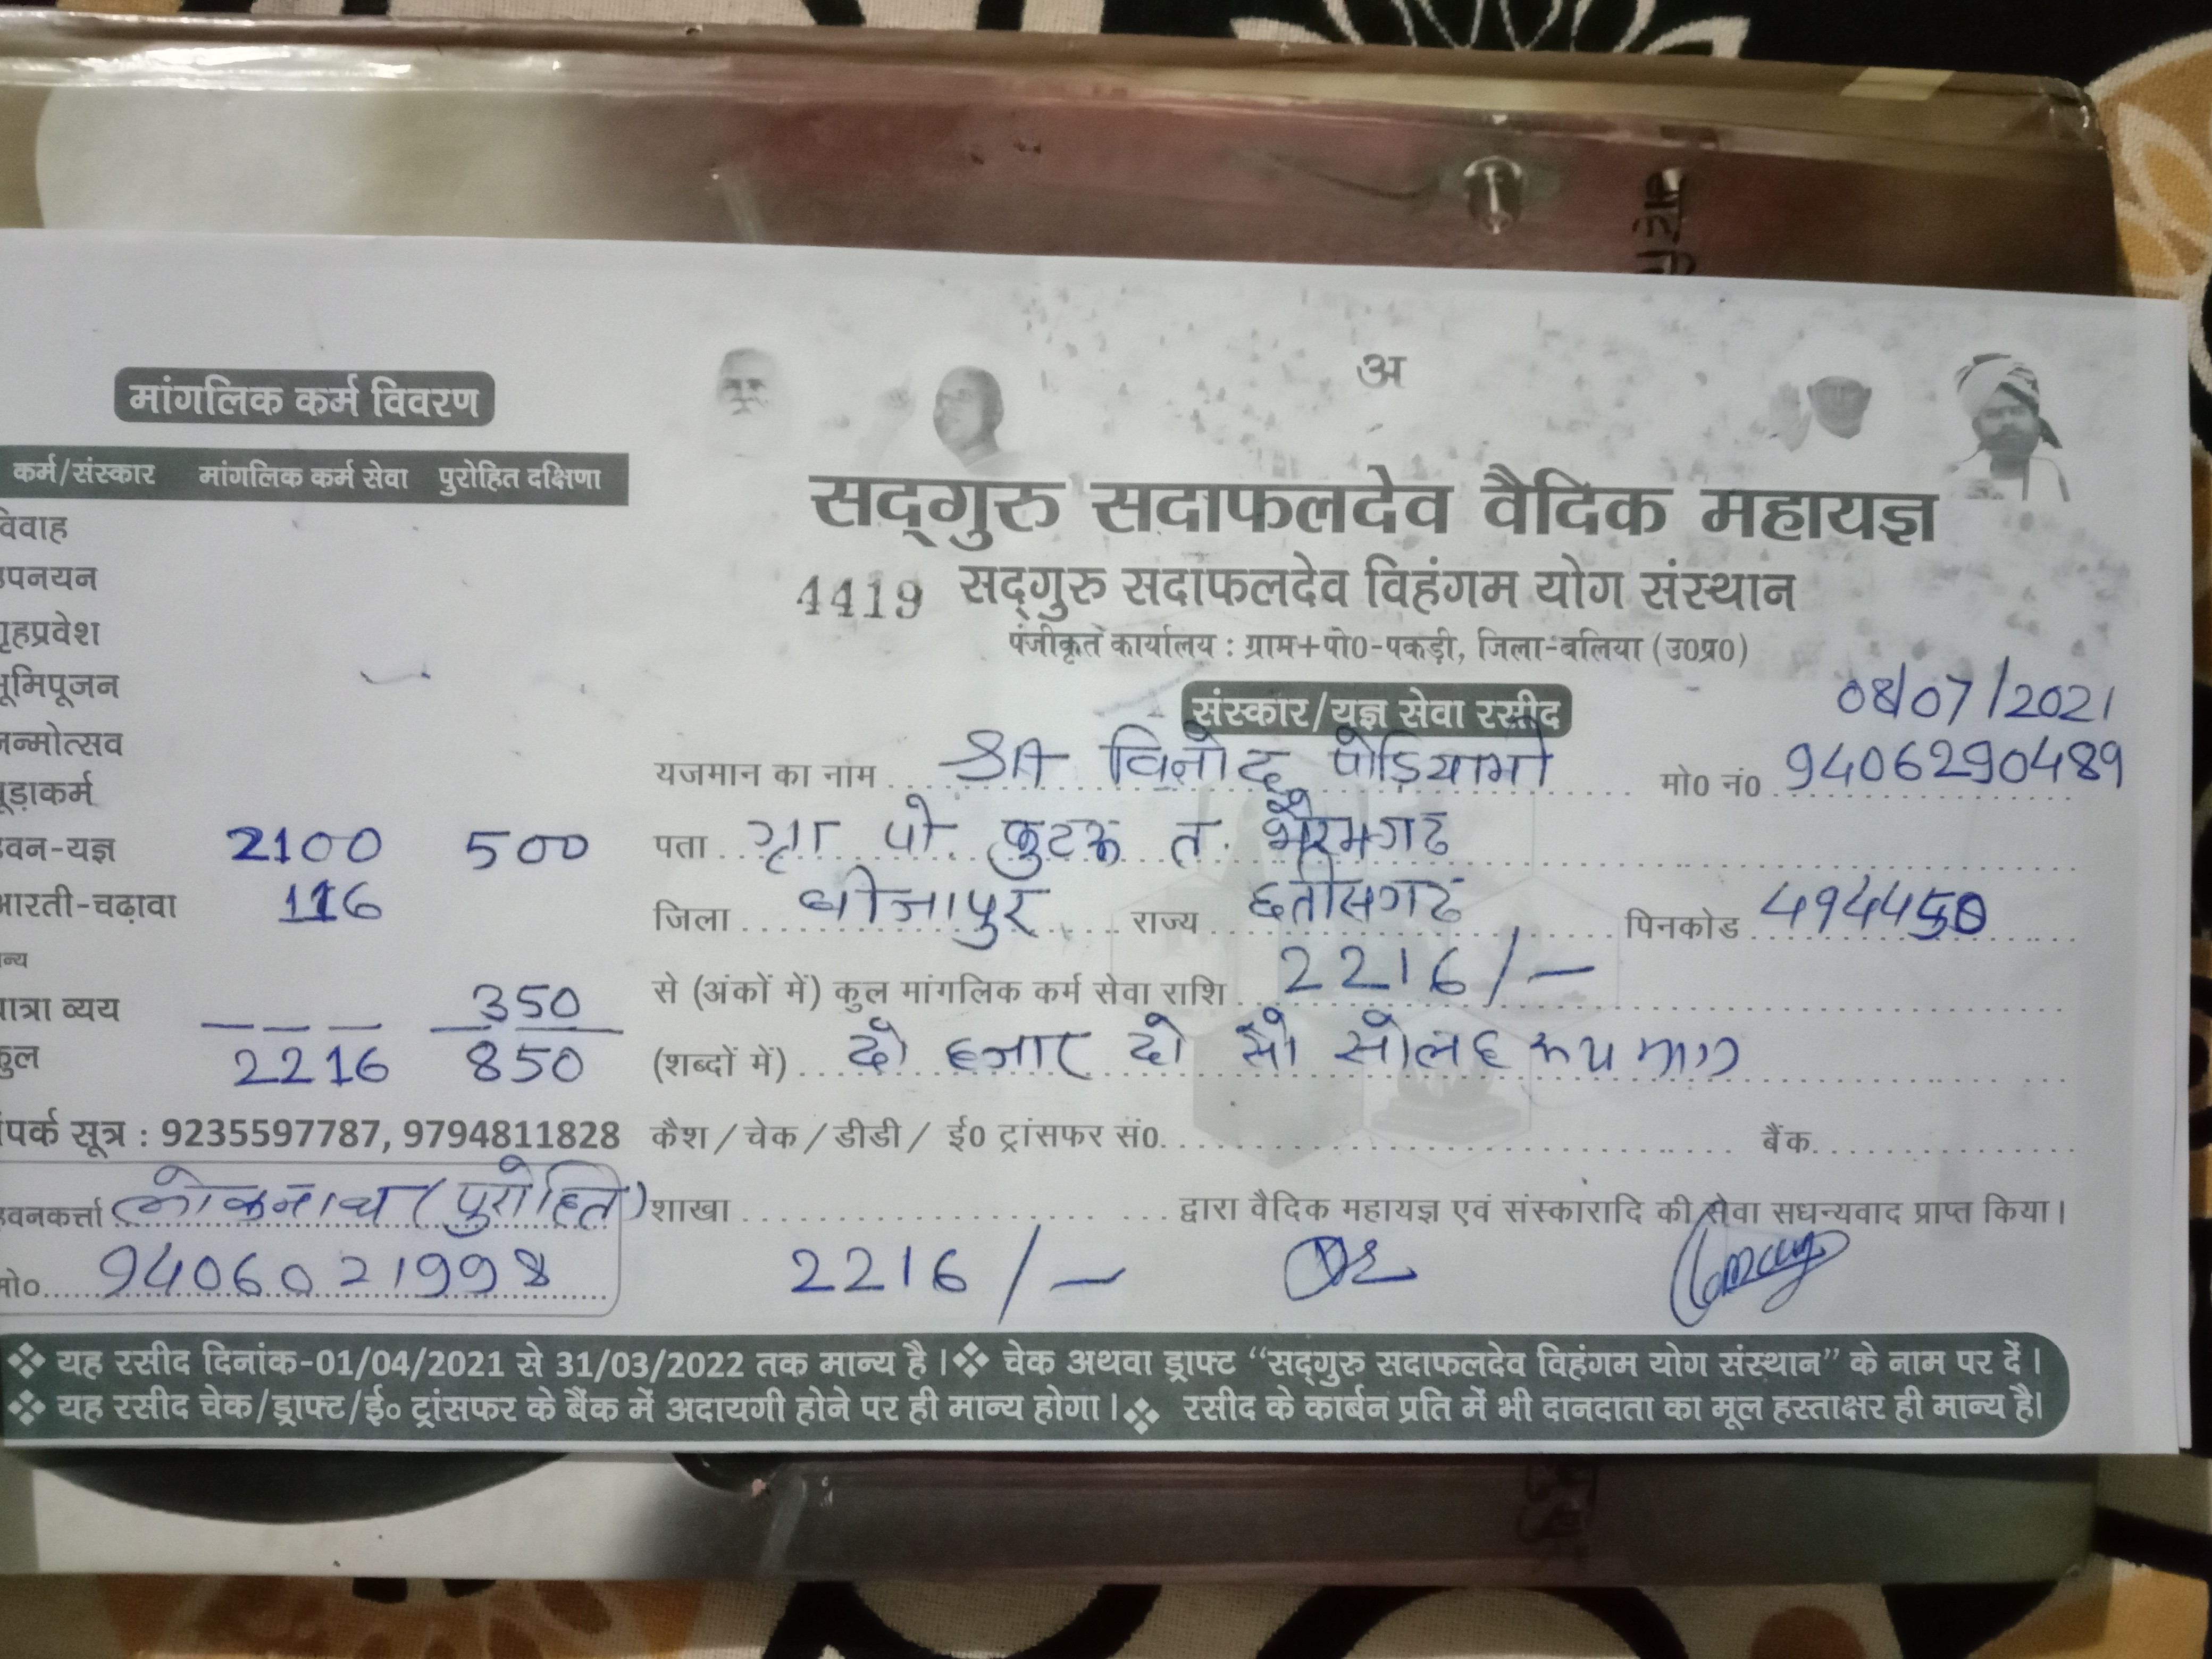 अ
मांगलिक कर्म विवरण
कर्म/संस्कार मांगलिक कर्म सेवा पुरोहित दक्षिणा
विवाह
उपनयन
गृहप्रवेश
भूमिपूजन
जन्मोत्सव
चूड़ाकर्म
हवन-यज्ञ 2100 500
आरती-चढ़ावा 116
अन्य
यात्रा व्यय 350
कुल 2216 850
संपर्क सूत्र : 9235597787, 9794811828
हवनकर्त्ता लोकनाथ (पुरोहित)
मो०. 9406021998
सद्गुरु सदाफलदेव वैदिक महायज्ञ
4419 सद्गुरु सदाफलदेव विहंगम योग संस्थान
पंजीकृत कार्यालय : ग्राम+पो0-पकड़ी, जिला-बलिया (उ0प्र0)
संस्कार/यज्ञ सेवा रसीद 08/07/2021
यजमान का नाम श्री विनोद पोड़ियामी मो0 नं0 9406290489
पता ग्रा पो. कुटरू त. भैरमगढ
जिला बीजापुर राज्य छतीसगढ पिनकोड 494450
से (अंकों में) कुल मांगलिक कर्म सेवा राशि 2216/-
(शब्दों में) दो हजार दो सौ सोलह रूप मात्र
कैश/चेक/डीडी/ ई0 ट्रांसफर सं0 बैंक
शाखा द्वारा वैदिक महायज्ञ एवं संस्कारादि की सेवा सधन्यवाद प्राप्त किया।
2216/-
❖ यह रसीद दिनांक-01/04/2021 से 31/03/2022 तक मान्य है। ❖ चेक अथवा ड्राफ्ट “सद्गुरु सदाफलदेव विहंगम योग संस्थान” के नाम पर दें।
❖ यह रसीद चेक/ड्राफ्ट/ई० ट्रांसफर के बैंक में अदायगी होने पर ही मान्य होगा। ❖ रसीद के कार्बन प्रति में भी दानदाता का मूल हस्ताक्षर ही मान्य है।